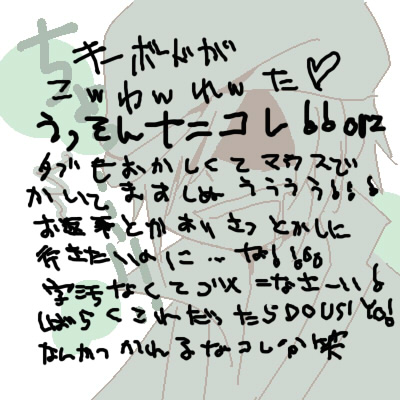 キーボードが
こwわwれwた♡
うっそんナニコレ6600rz
タブもおかしくてマウスで
かいてますしぬうううう!!!
お返事とかありさつとかしに
行きたいのに…な!!!
字汚なくてゴメンなさーい!
しばらくこれだったらDOUSIYO!
なんかつかれるなコレ 笑